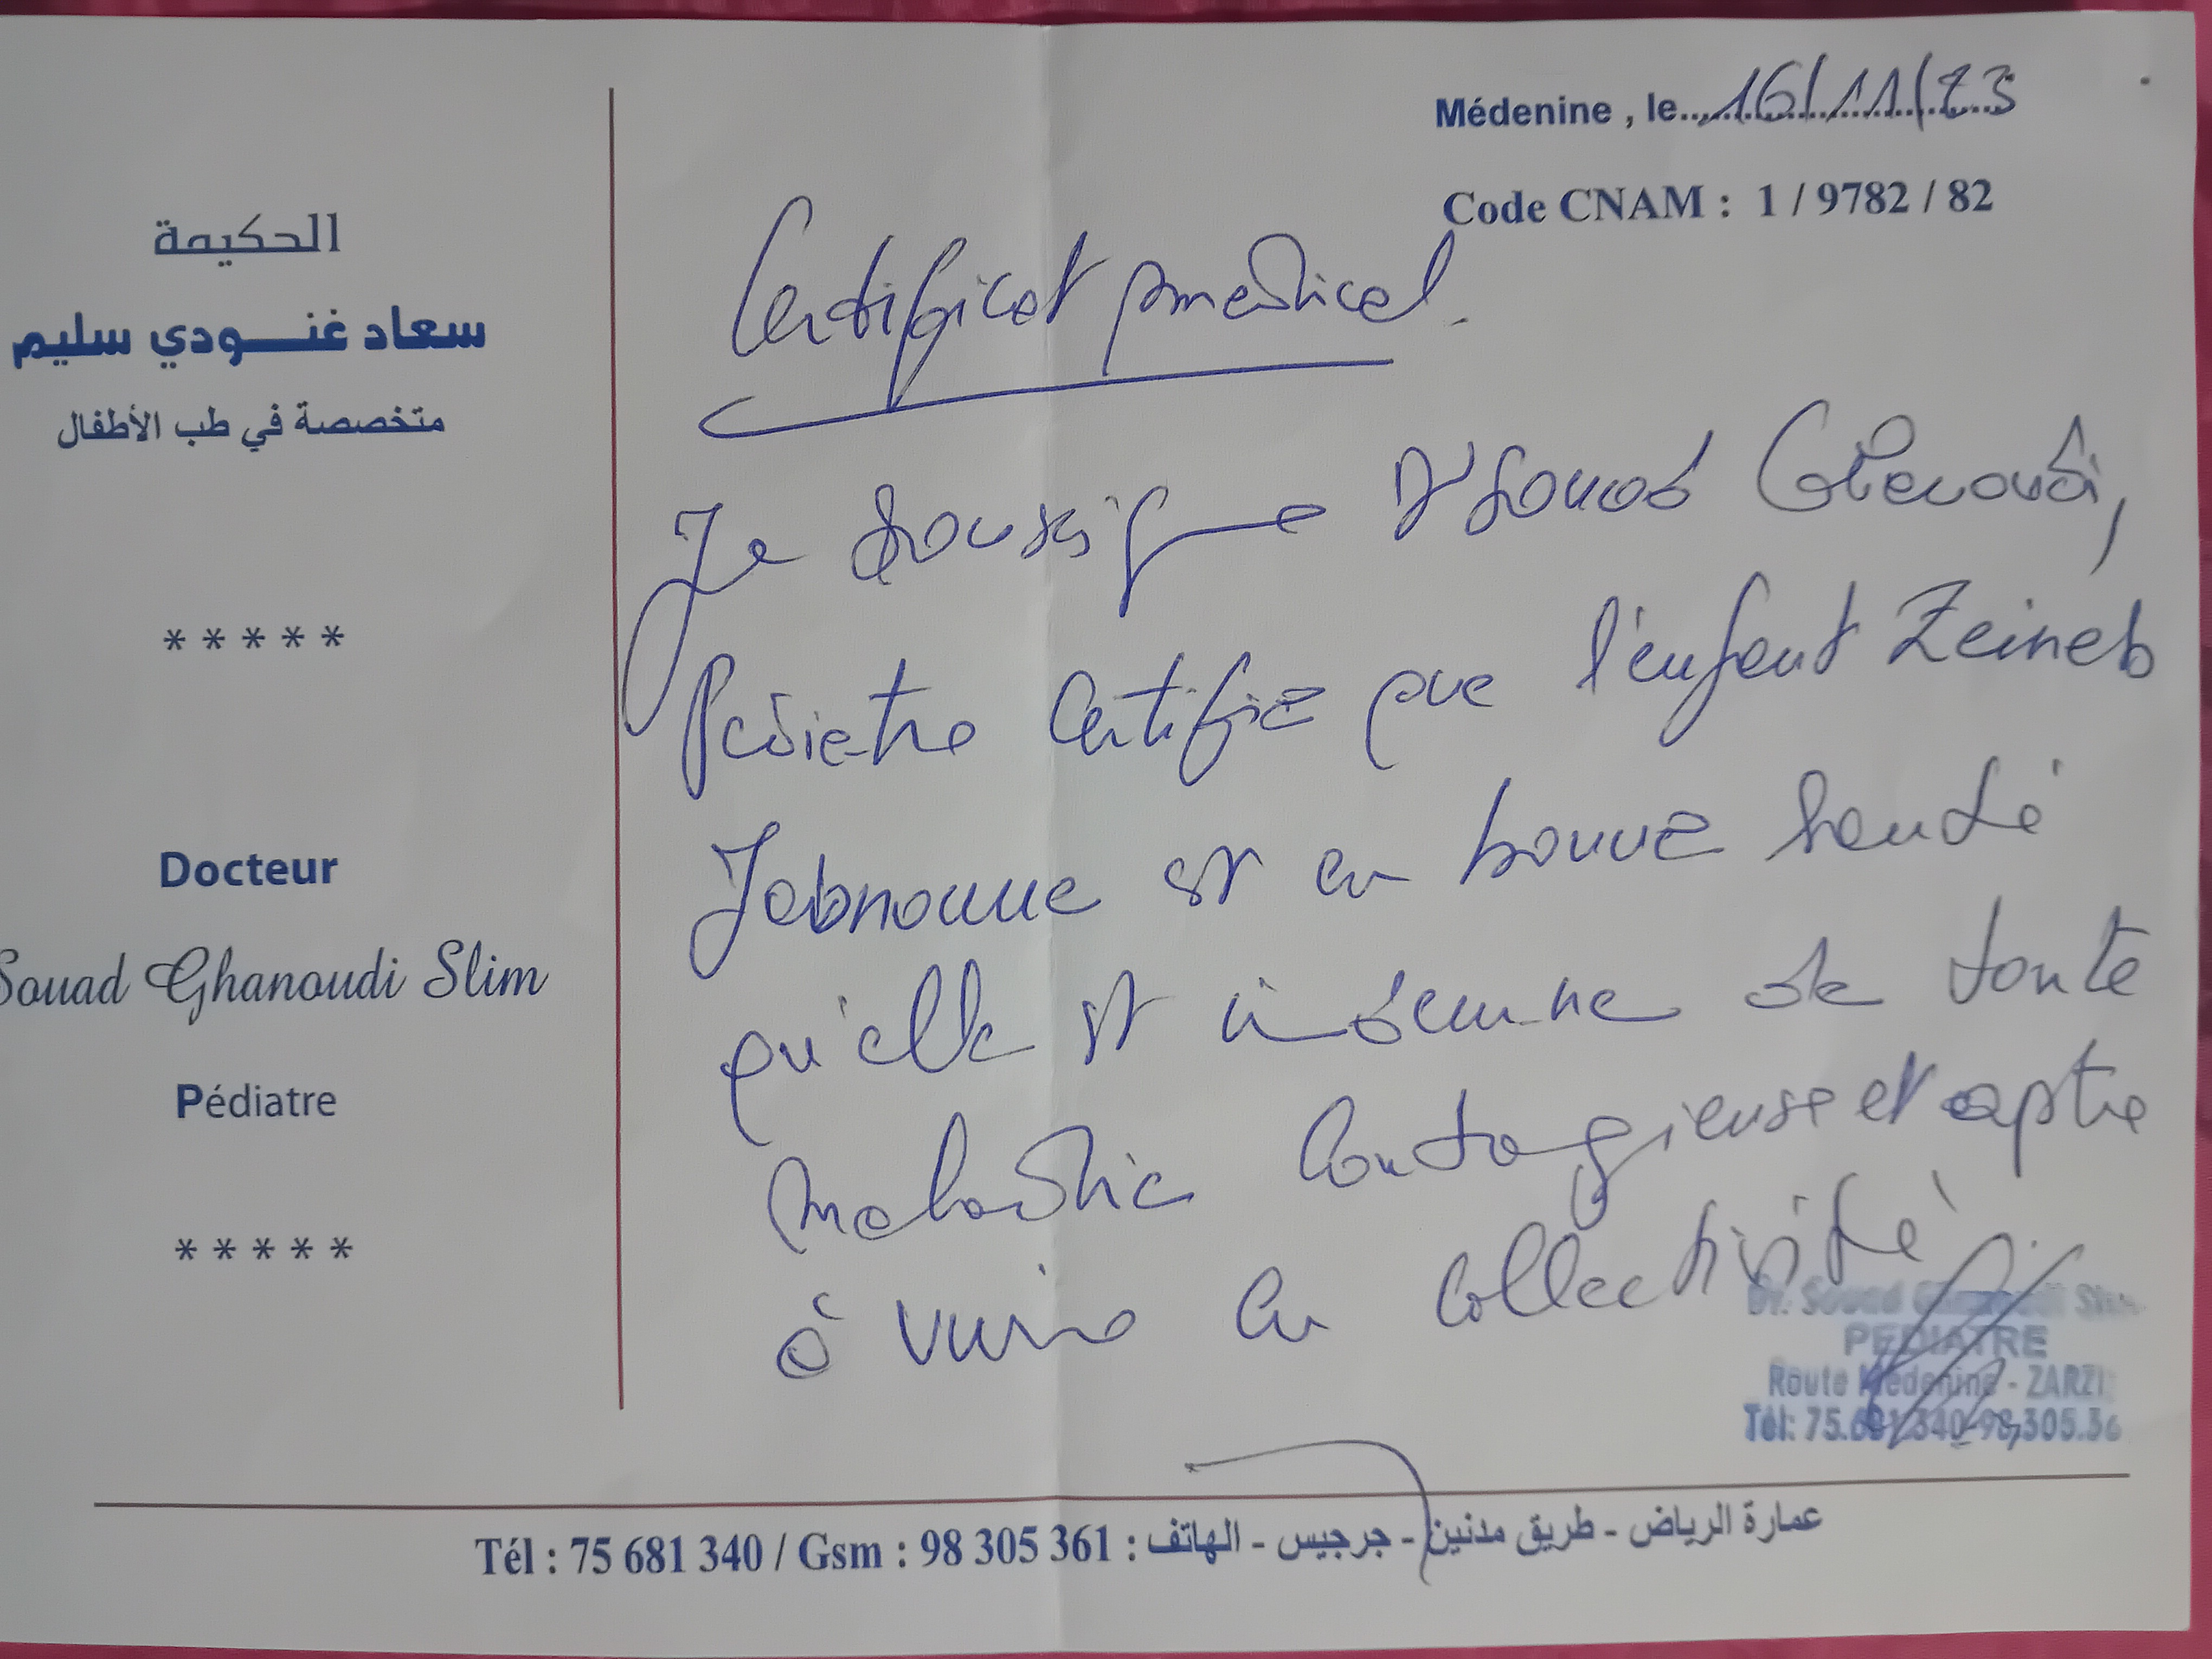 الحكيمة
سعاد غنودي سليم
متخصصة في طب الأطفال
* * * * *
Docteur
Souad Ghanoudi Slim
Pédiatre
* * * * *
Médenine , le 16/11/23
Code CNAM : 1 / 9782 / 82
Certificat médical.
Je soussigne Dr Souad Ghenoudi,
Pédiatre certifie que l'enfant Zeineb
Jabnoune est en bonne santé
qu'elle est indemne de toute
maladie contagieuse et apte
à vivre en collectivité
Dr. Souad Ghanoudi Slim
PEDIATRE
Route Médenine - ZARZI
Tél: 75.681.340-98.305.36
عمارة الرياض - طريق مدنين - جرجيس - الهاتف : Tél : 75 681 340 / Gsm : 98 305 361